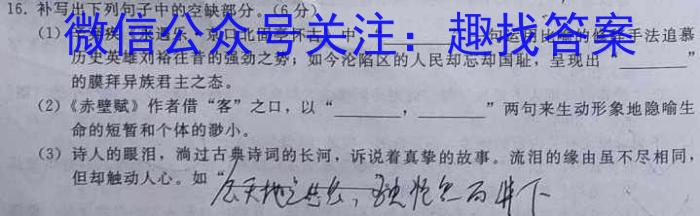 16. 补写出下列句子中的空缺部分。(6分)
微信公众号关注：趣找答案
(1) 中 句运用比喻的修辞手法追慕
历史英雄刘裕往昔的强劲之势；如今沦陷区的人民却忘却国耻，呈现出“ ”
的膜拜异族君主之态。
(2)《赤壁赋》作者借“客”之口，以“ ， ”两句来生动形象地隐喻生
命的短暂和个体的渺小。
(3) 诗人的眼泪，淌过古典诗词的长河，诉说着真挚的故事。流泪的缘由虽不尽相同，
但却触动人心。如“念天地之悠悠，独怆然而涕下